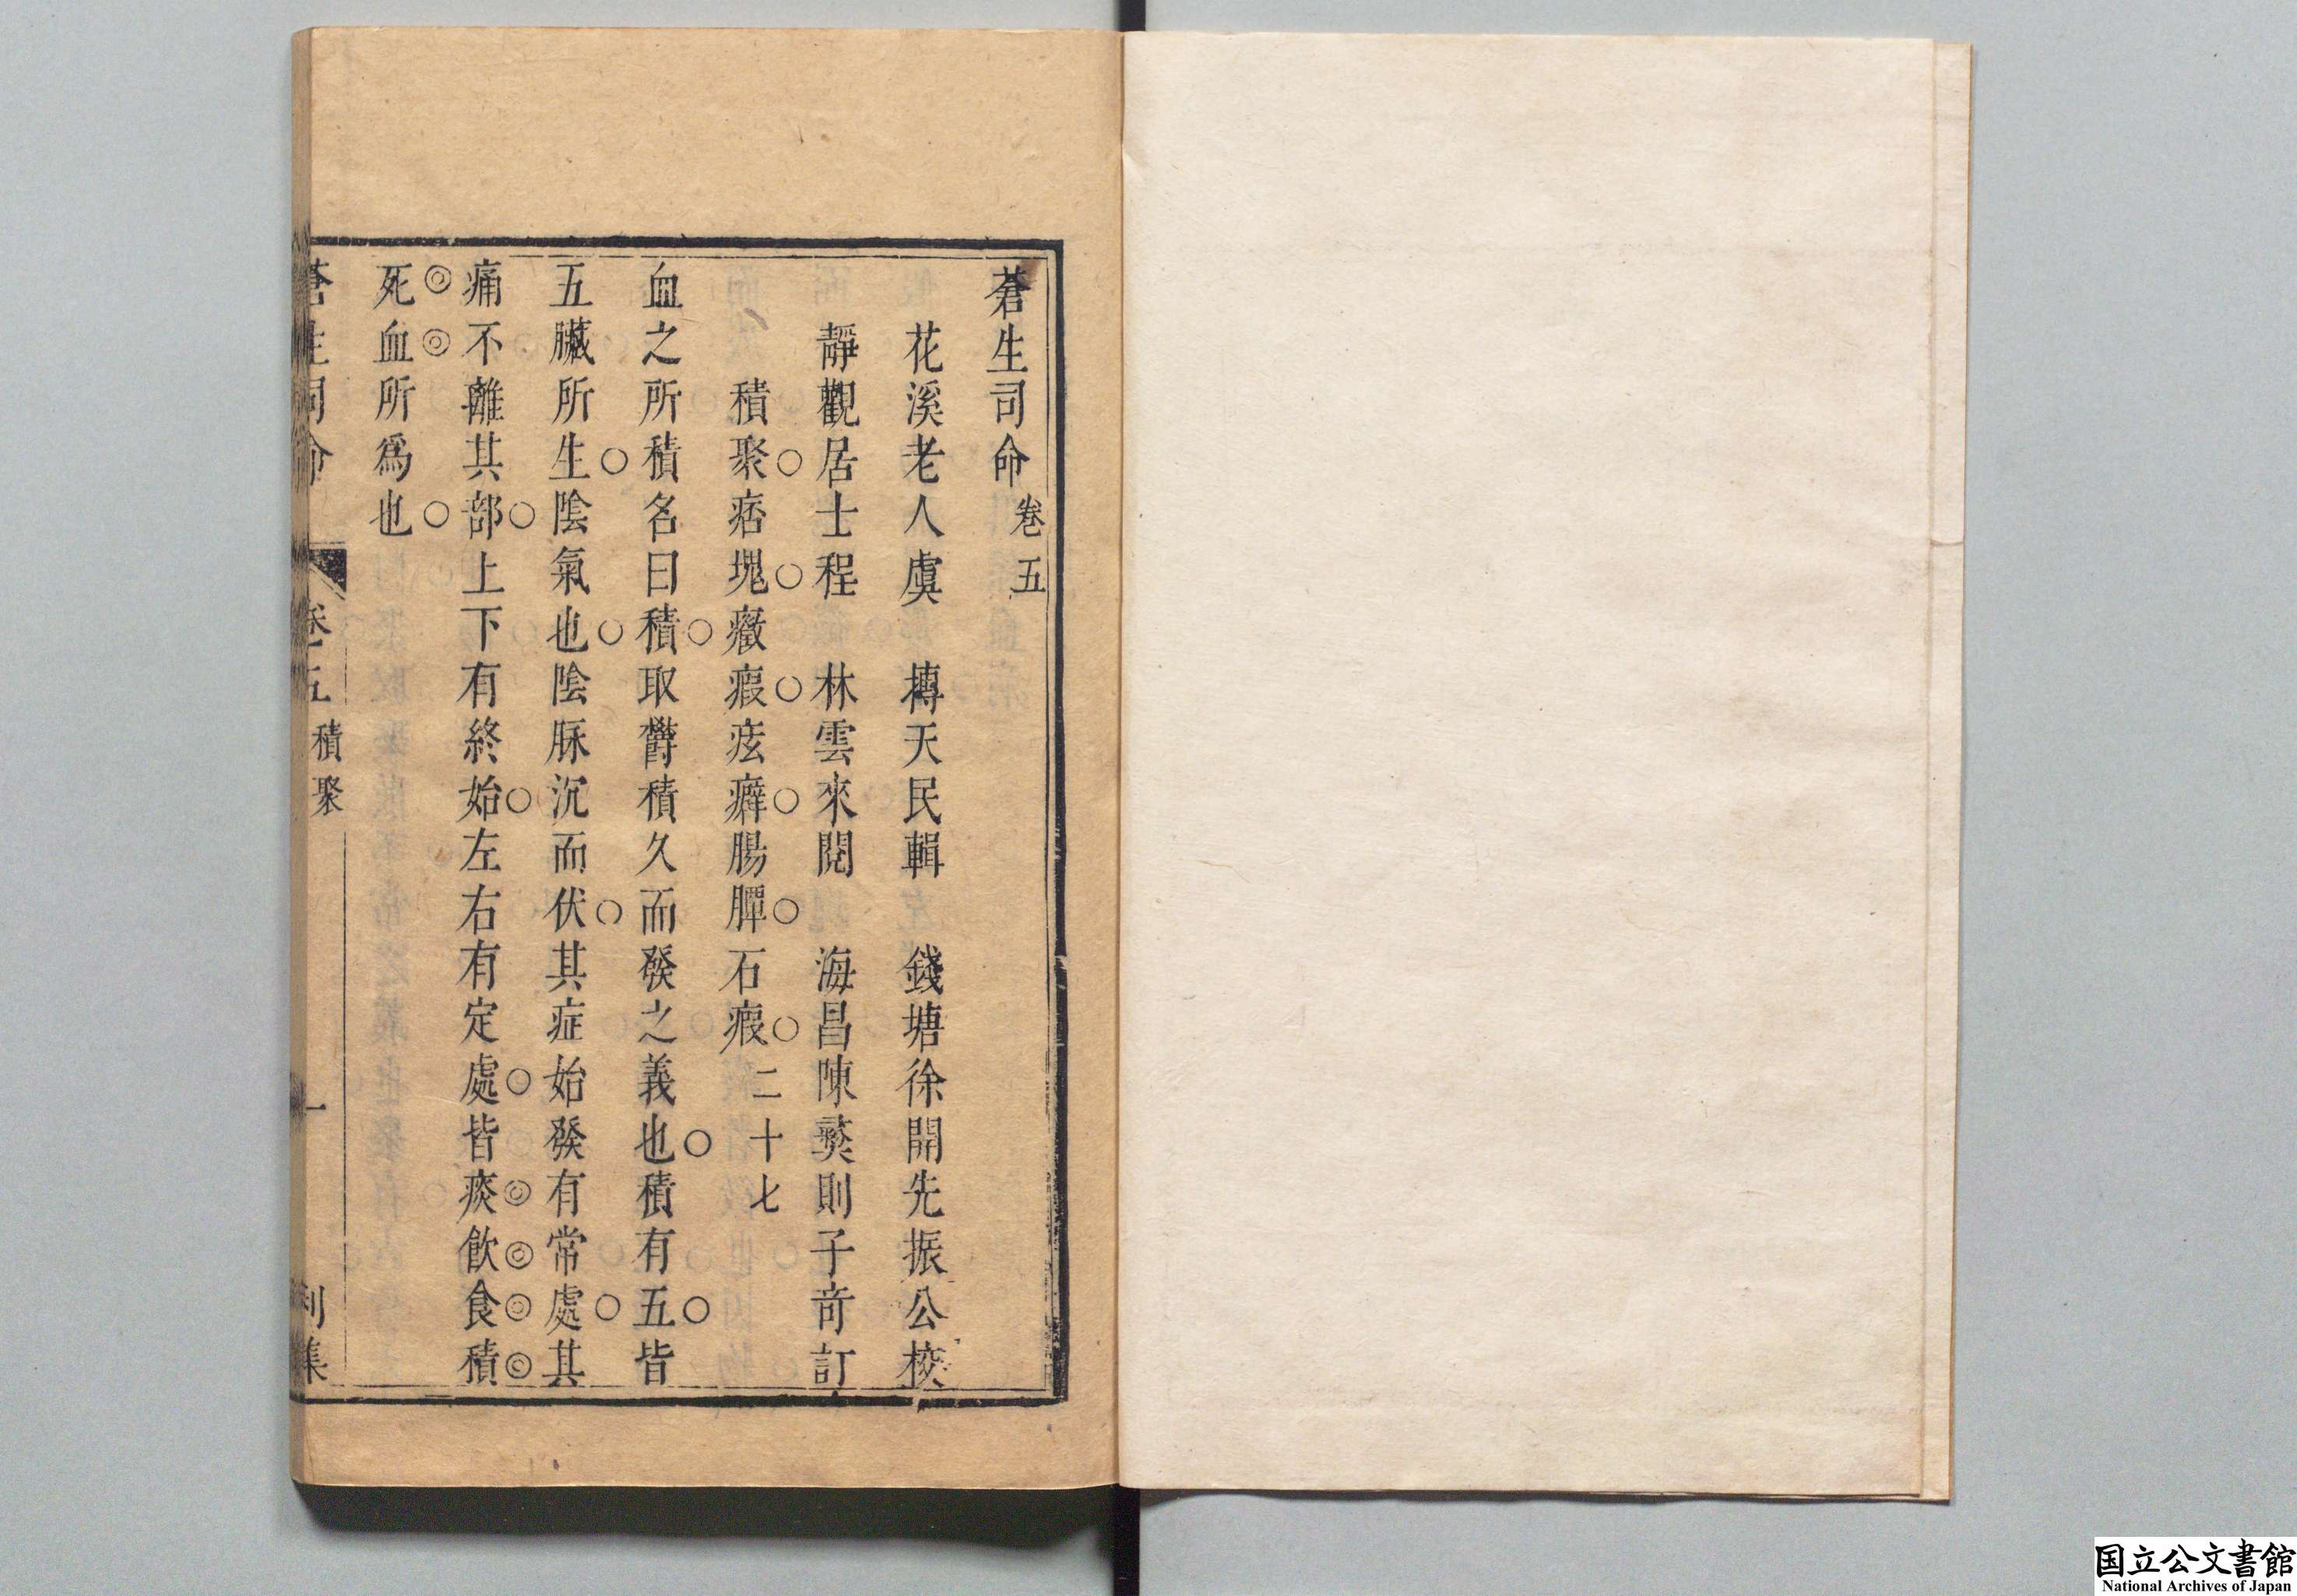 蒼生司命卷五
花溪老人虞　摶天民輯　錢塘徐開先振公校
靜觀居士程　林雲來閱　海昌陳㷸則子奇訂
積聚○痞塊○癥瘕○痃癖○腸覃○石瘕○二十七
血之所積名曰積○取欝積久而發之義也○積有五○皆
五臟所生○陰氣也○陰脉沉而伏○其症始發有常處○其
痛不離其部○上下有終始○左右有定處○皆痰◎飲◎食◎積◎
死◎血◎所爲也○
蒼生司命　卷五　積聚　一　利集
国立公文書館
National Archives of Japan